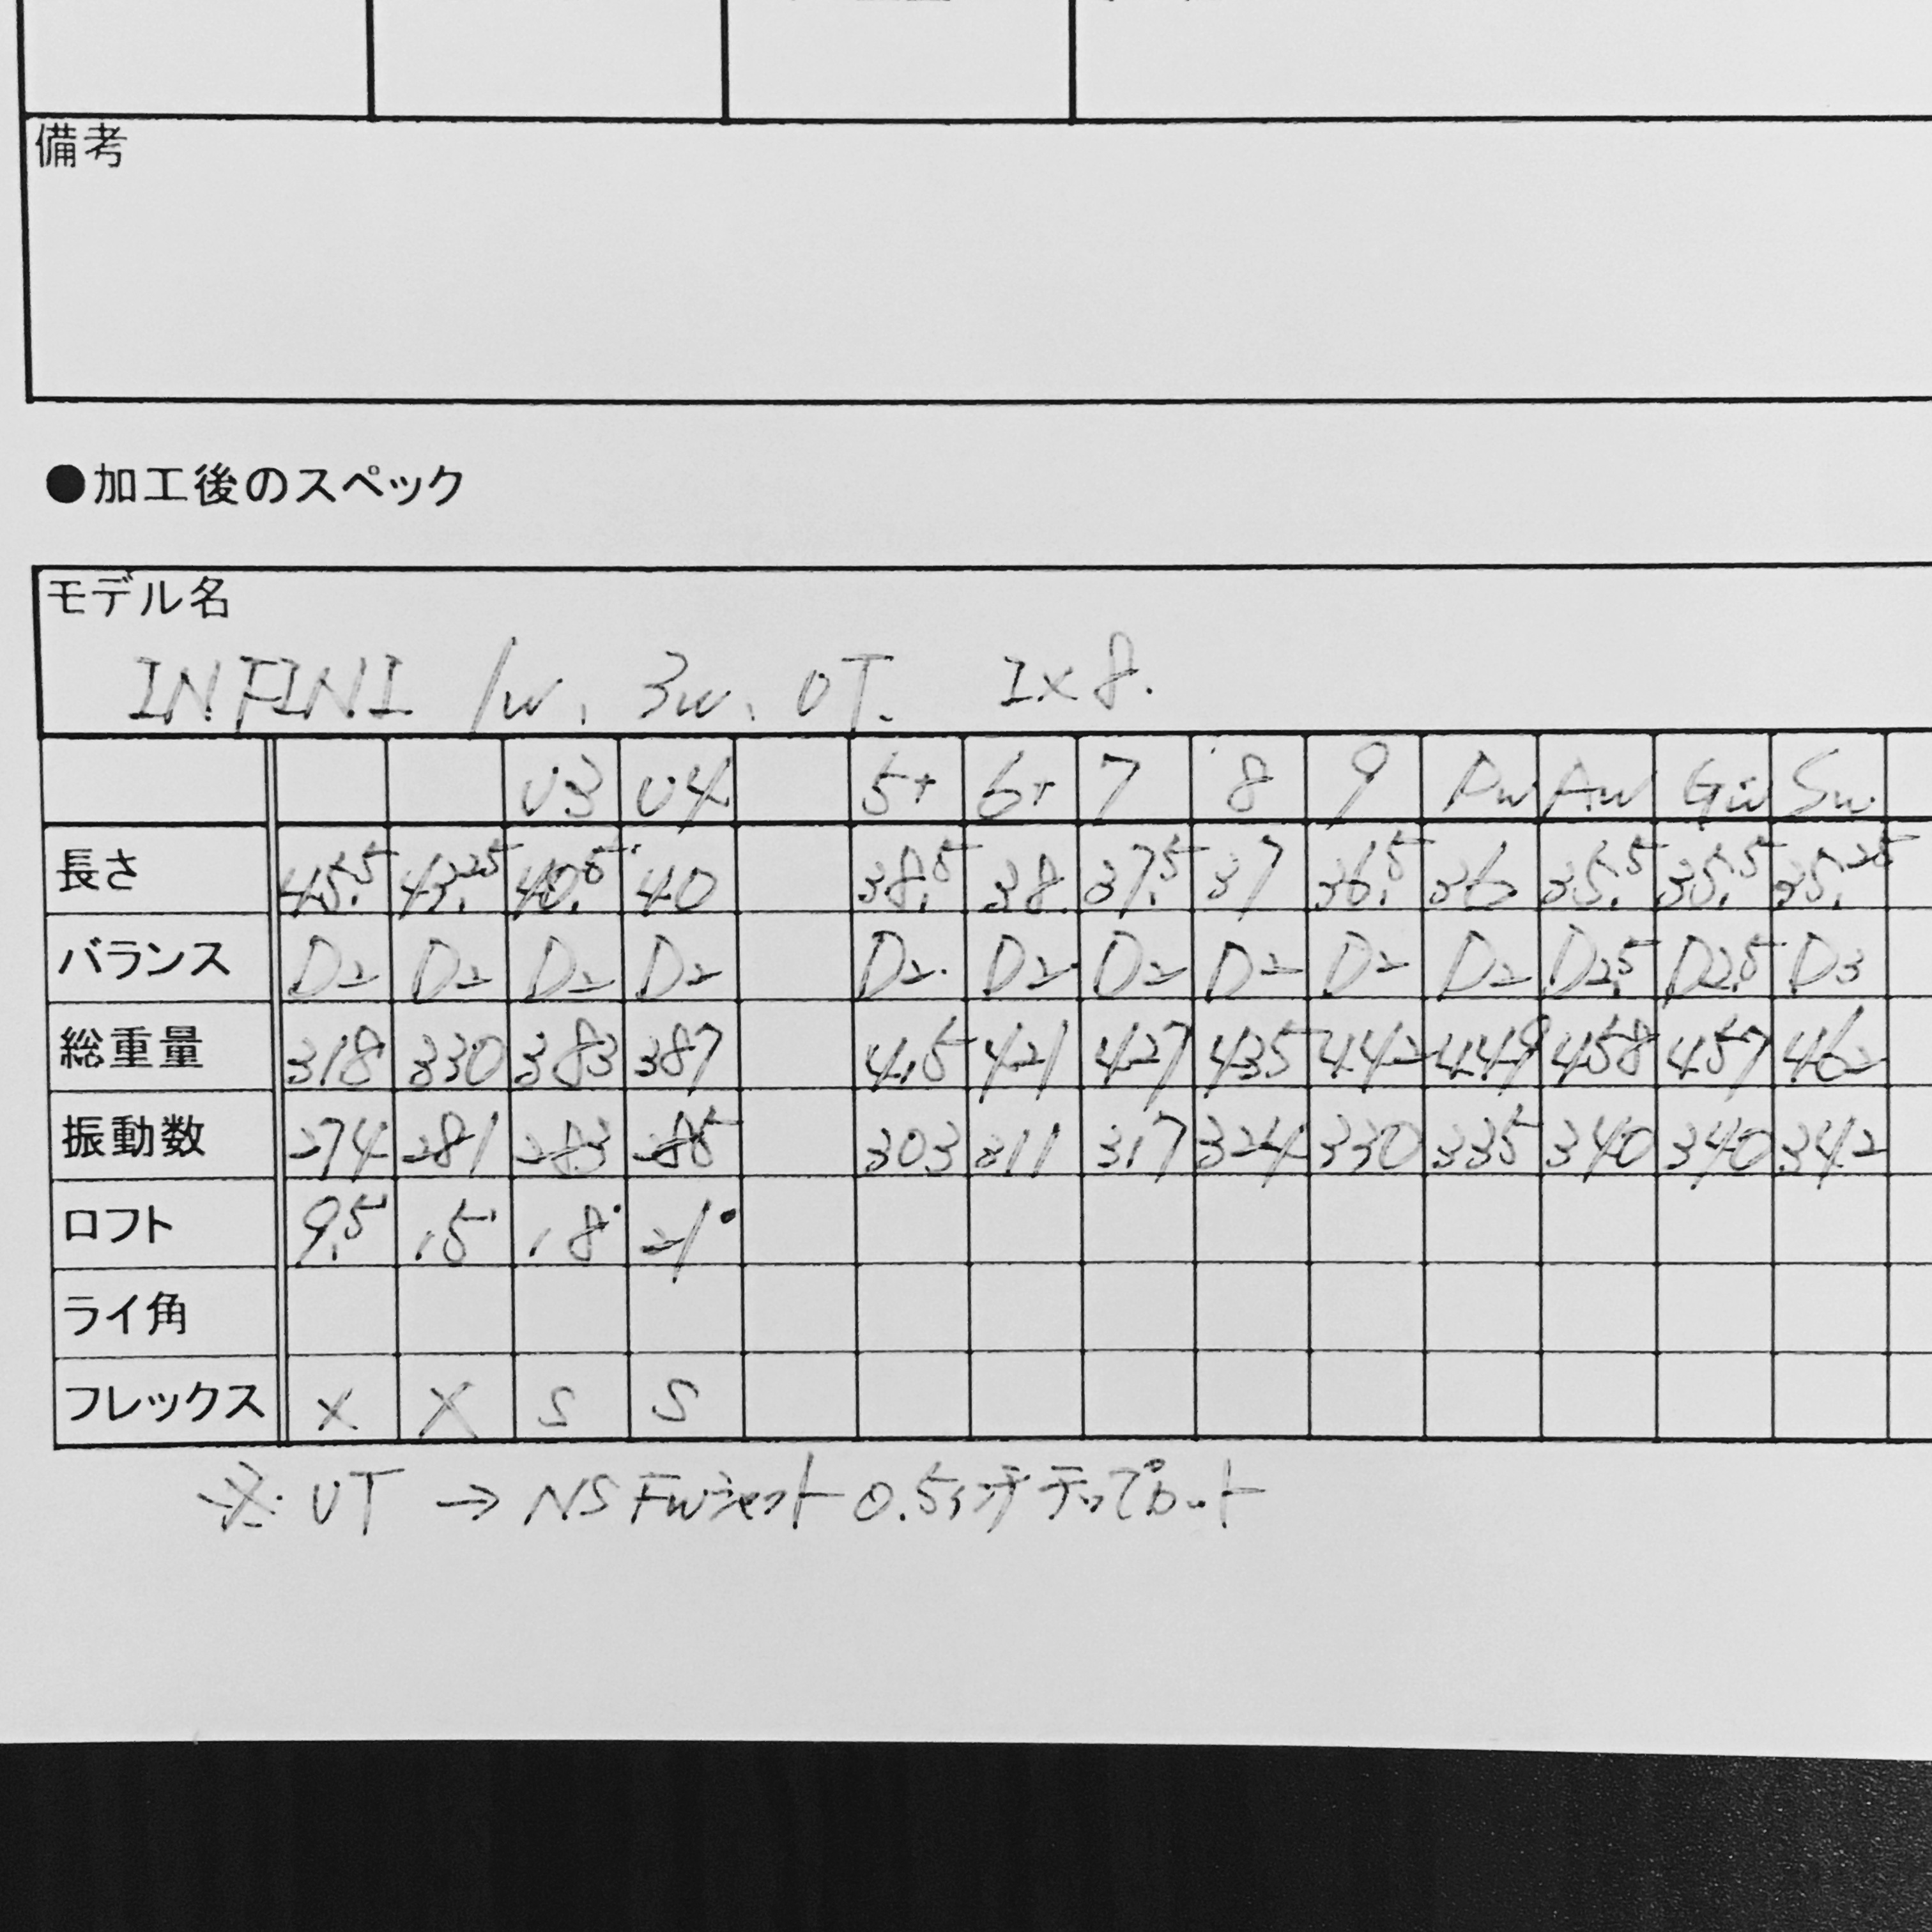 備考
●加工後のスペック
モデル名
INFINI 1W、3W、UT. I×8.
U3 U4 5+ 6+ 7 8 9 PW AW GW SW
長さ 45.5 43.25 40.5 40 38.5 38. 37.5 37 36.5 36 35.5 35.5 35.25
バランス D2 D2 D2 D2 D2 D2 D2 D2 D2 D2 D2.5 D2.5 D3
総重量 318 330 383 387 415 421 427 435 442 449 458 457 462
振動数 274 281 283 285 303 311 317 324 330 335 340 340 342
ロフト 9.5° 15° 18° 21°
ライ角
フレックス X X S S
※UT → NS FWシャフト 0.5インチチップカット